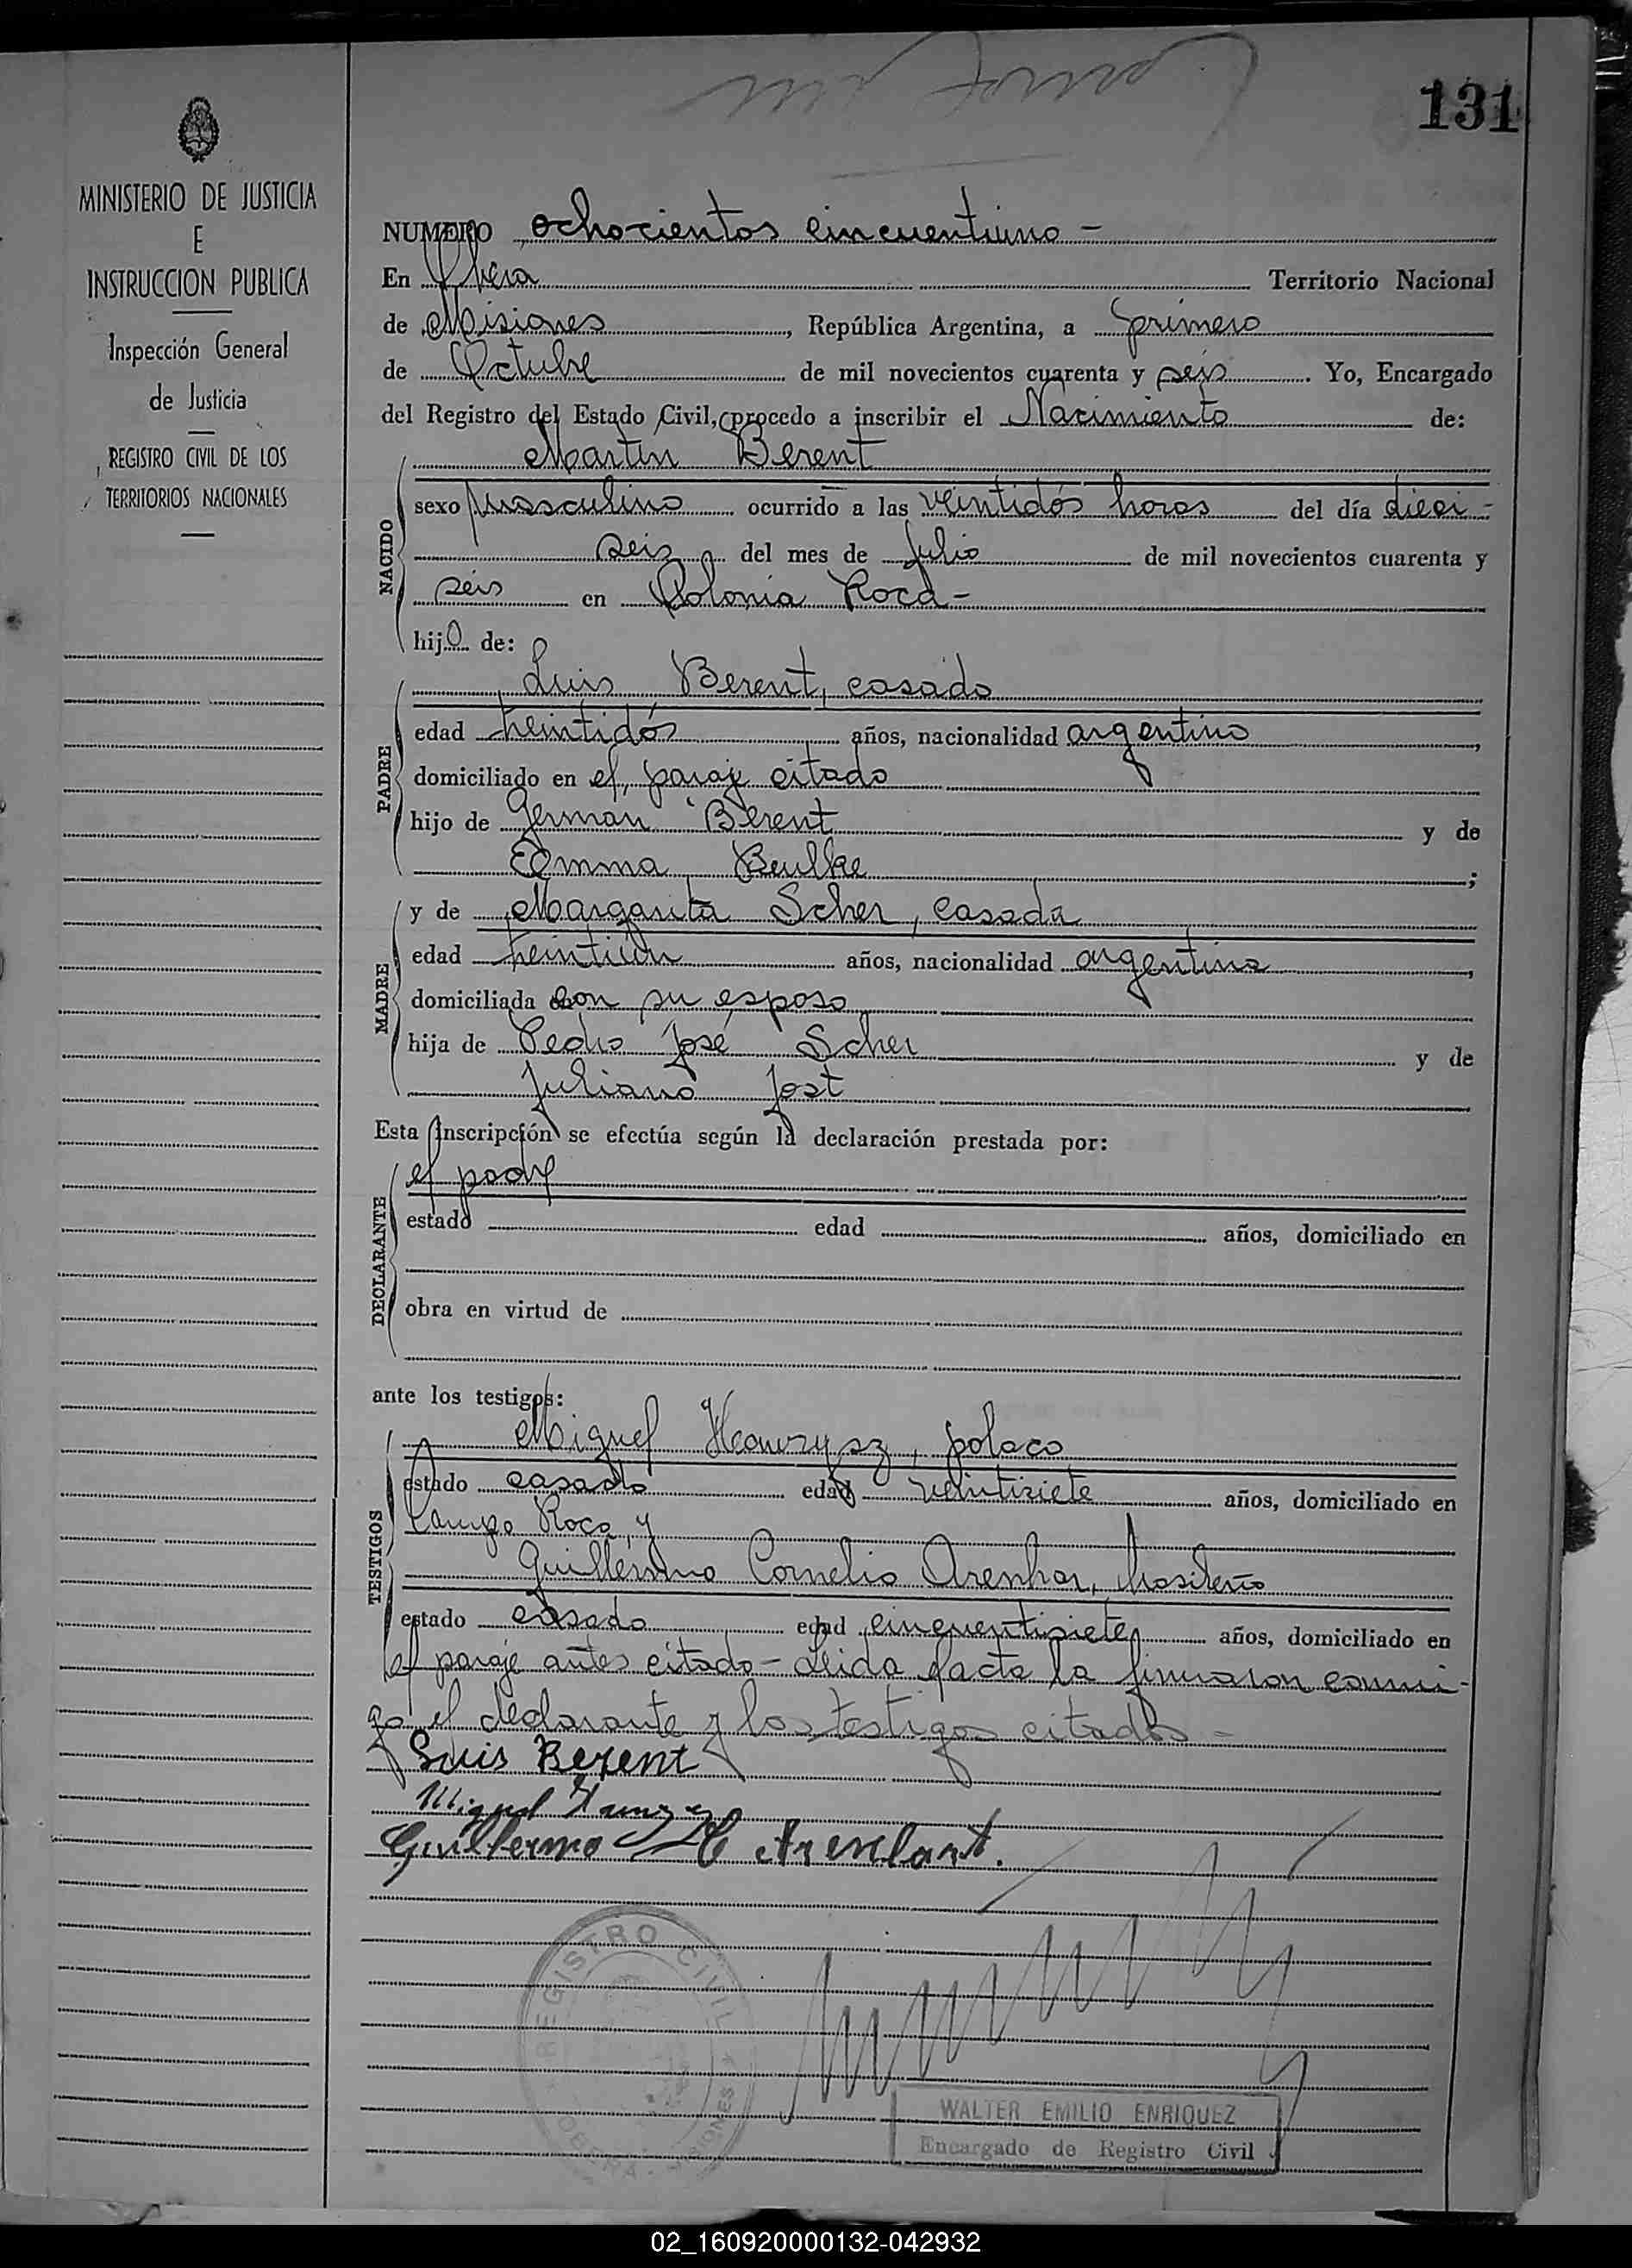 131
MINISTERIO DE JUSTICIA
E
INSTRUCCION PUBLICA
Inspección General
de Justicia
REGISTRO CIVIL DE LOS
TERRITORIOS NACIONALES
NUMERO ochocientos cincuentiuno -
En Oberá Territorio Nacional
de Misiones, República Argentina, a primero
de Octubre de mil novecientos cuarenta y seis. Yo, Encargado
del Registro del Estado Civil, procedo a inscribir el Nacimiento de:
Martin Berent
NACIDO
sexo masculino ocurrido a las veintidós horas del día dieci-
seis del mes de Julio de mil novecientos cuarenta y
seis en Colonia Roca-
hijo de:
Luis Berent, casado
PADRE
edad treintidós años, nacionalidad argentino,
domiciliado en el paraje citado
hijo de German Berent y de
Emma Beulke;
MADRE
y de Margarita Scher, casada
edad treintiún años, nacionalidad argentina,
domiciliada con su esposo
hija de Pedro José Scher y de
Juliana Jost
Esta inscripción se efectúa según la declaración prestada por:
DECLARANTE
el padre
estado edad años, domiciliado en
obra en virtud de
ante los testigos:
TESTIGOS
Miguel , polaco
estado casado edad veintisiete años, domiciliado en
Campo Roca, y
Guillermo Cornelio Arenhar, brasileño
estado casado edad cincuentisiete años, domiciliado en
el paraje antes citado - Leida el acta la firmaron conmi-
go el declarante y los testigos citados -
Luis Berent
Miguel
Guillermo C Arenhart.
REGISTRO CIVIL
OBERA - MISIONES
WALTER EMILIO ENRIQUEZ
Encargado de Registro Civil
02_160920000132-042932